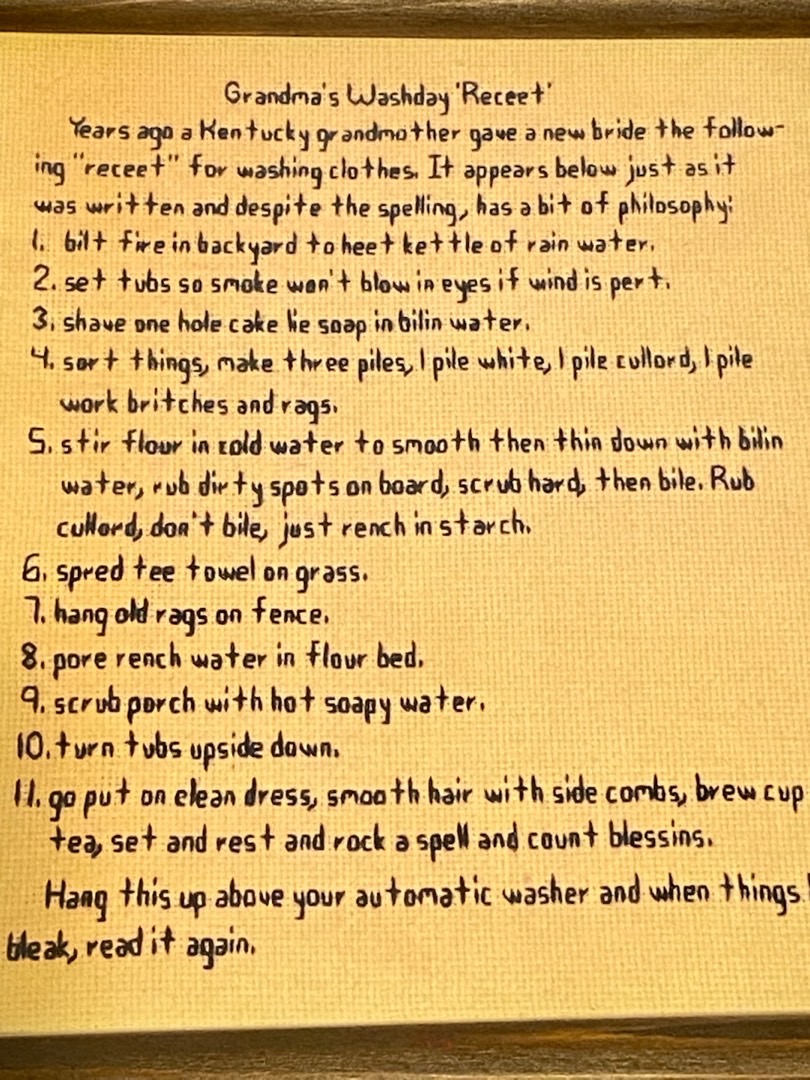 Grandma's Washday 'Receet'
Years ago a Kentucky grandmother gave a new bride the follow-
ing "receet" for washing clothes. It appears below just as it
was written and despite the spelling, has a bit of philosophy:
1. bilt fire in backyard to heet kettle of rain water.
2. set tubs so smoke won't blow in eyes if wind is pert.
3. shave one hole cake lie soap in bilin water.
4. sort things, make three piles, 1 pile white, 1 pile cullord, 1 pile
work britches and rags.
5. stir flour in cold water to smooth then thin down with bilin
water, rub dirty spots on board, scrub hard, then bile. Rub
cullord, don't bile, just rench in starch.
6. spred tee towel on grass.
7. hang old rags on fence.
8. pore rench water in flour bed.
9. scrub porch with hot soapy water.
10. turn tubs upside down.
11. go put on clean dress, smooth hair with side combs, brew cup
tea, set and rest and rock a spell and count blessins.
Hang this up above your automatic washer and when things
bleak, read it again.